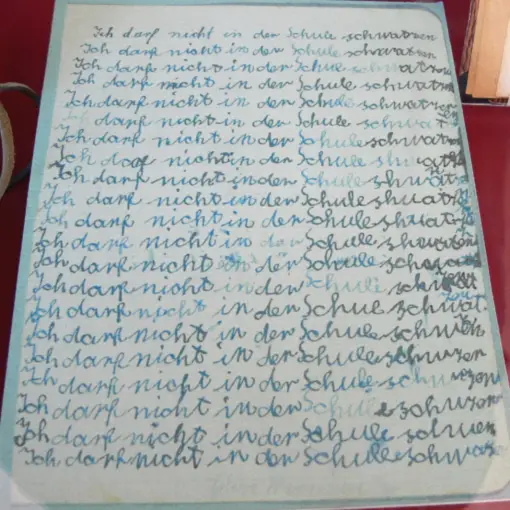 Ich darf nicht in der Schule schwatzen
Ich darf nicht in der Schule schwatzen
Ich darf nicht in der Schule schwatzen
Ich darf nicht in der Schule schwatzen
Ich darf nicht in der Schule schwatzen
Ich darf nicht in der Schule schwat
Ich darf nicht in der Schule schwatzen
Ich darf nicht in der Schule
Ich darf nicht in der Schule
Ich darf nicht in der Schule
Ich darf nicht in der Schule
Ich darf nicht in der Schule
Ich darf nicht in der Schule
Ich darf nicht in der Schule
Ich darf nicht in der Schule schwat
zen
Ich darf nicht in der Schule
Ich darf nicht in der Schule
Ich darf nicht in der Schule
Ich darf nicht in der Schule schwzen
Ich darf nicht in der Schule
Ich darf nicht in der Schule